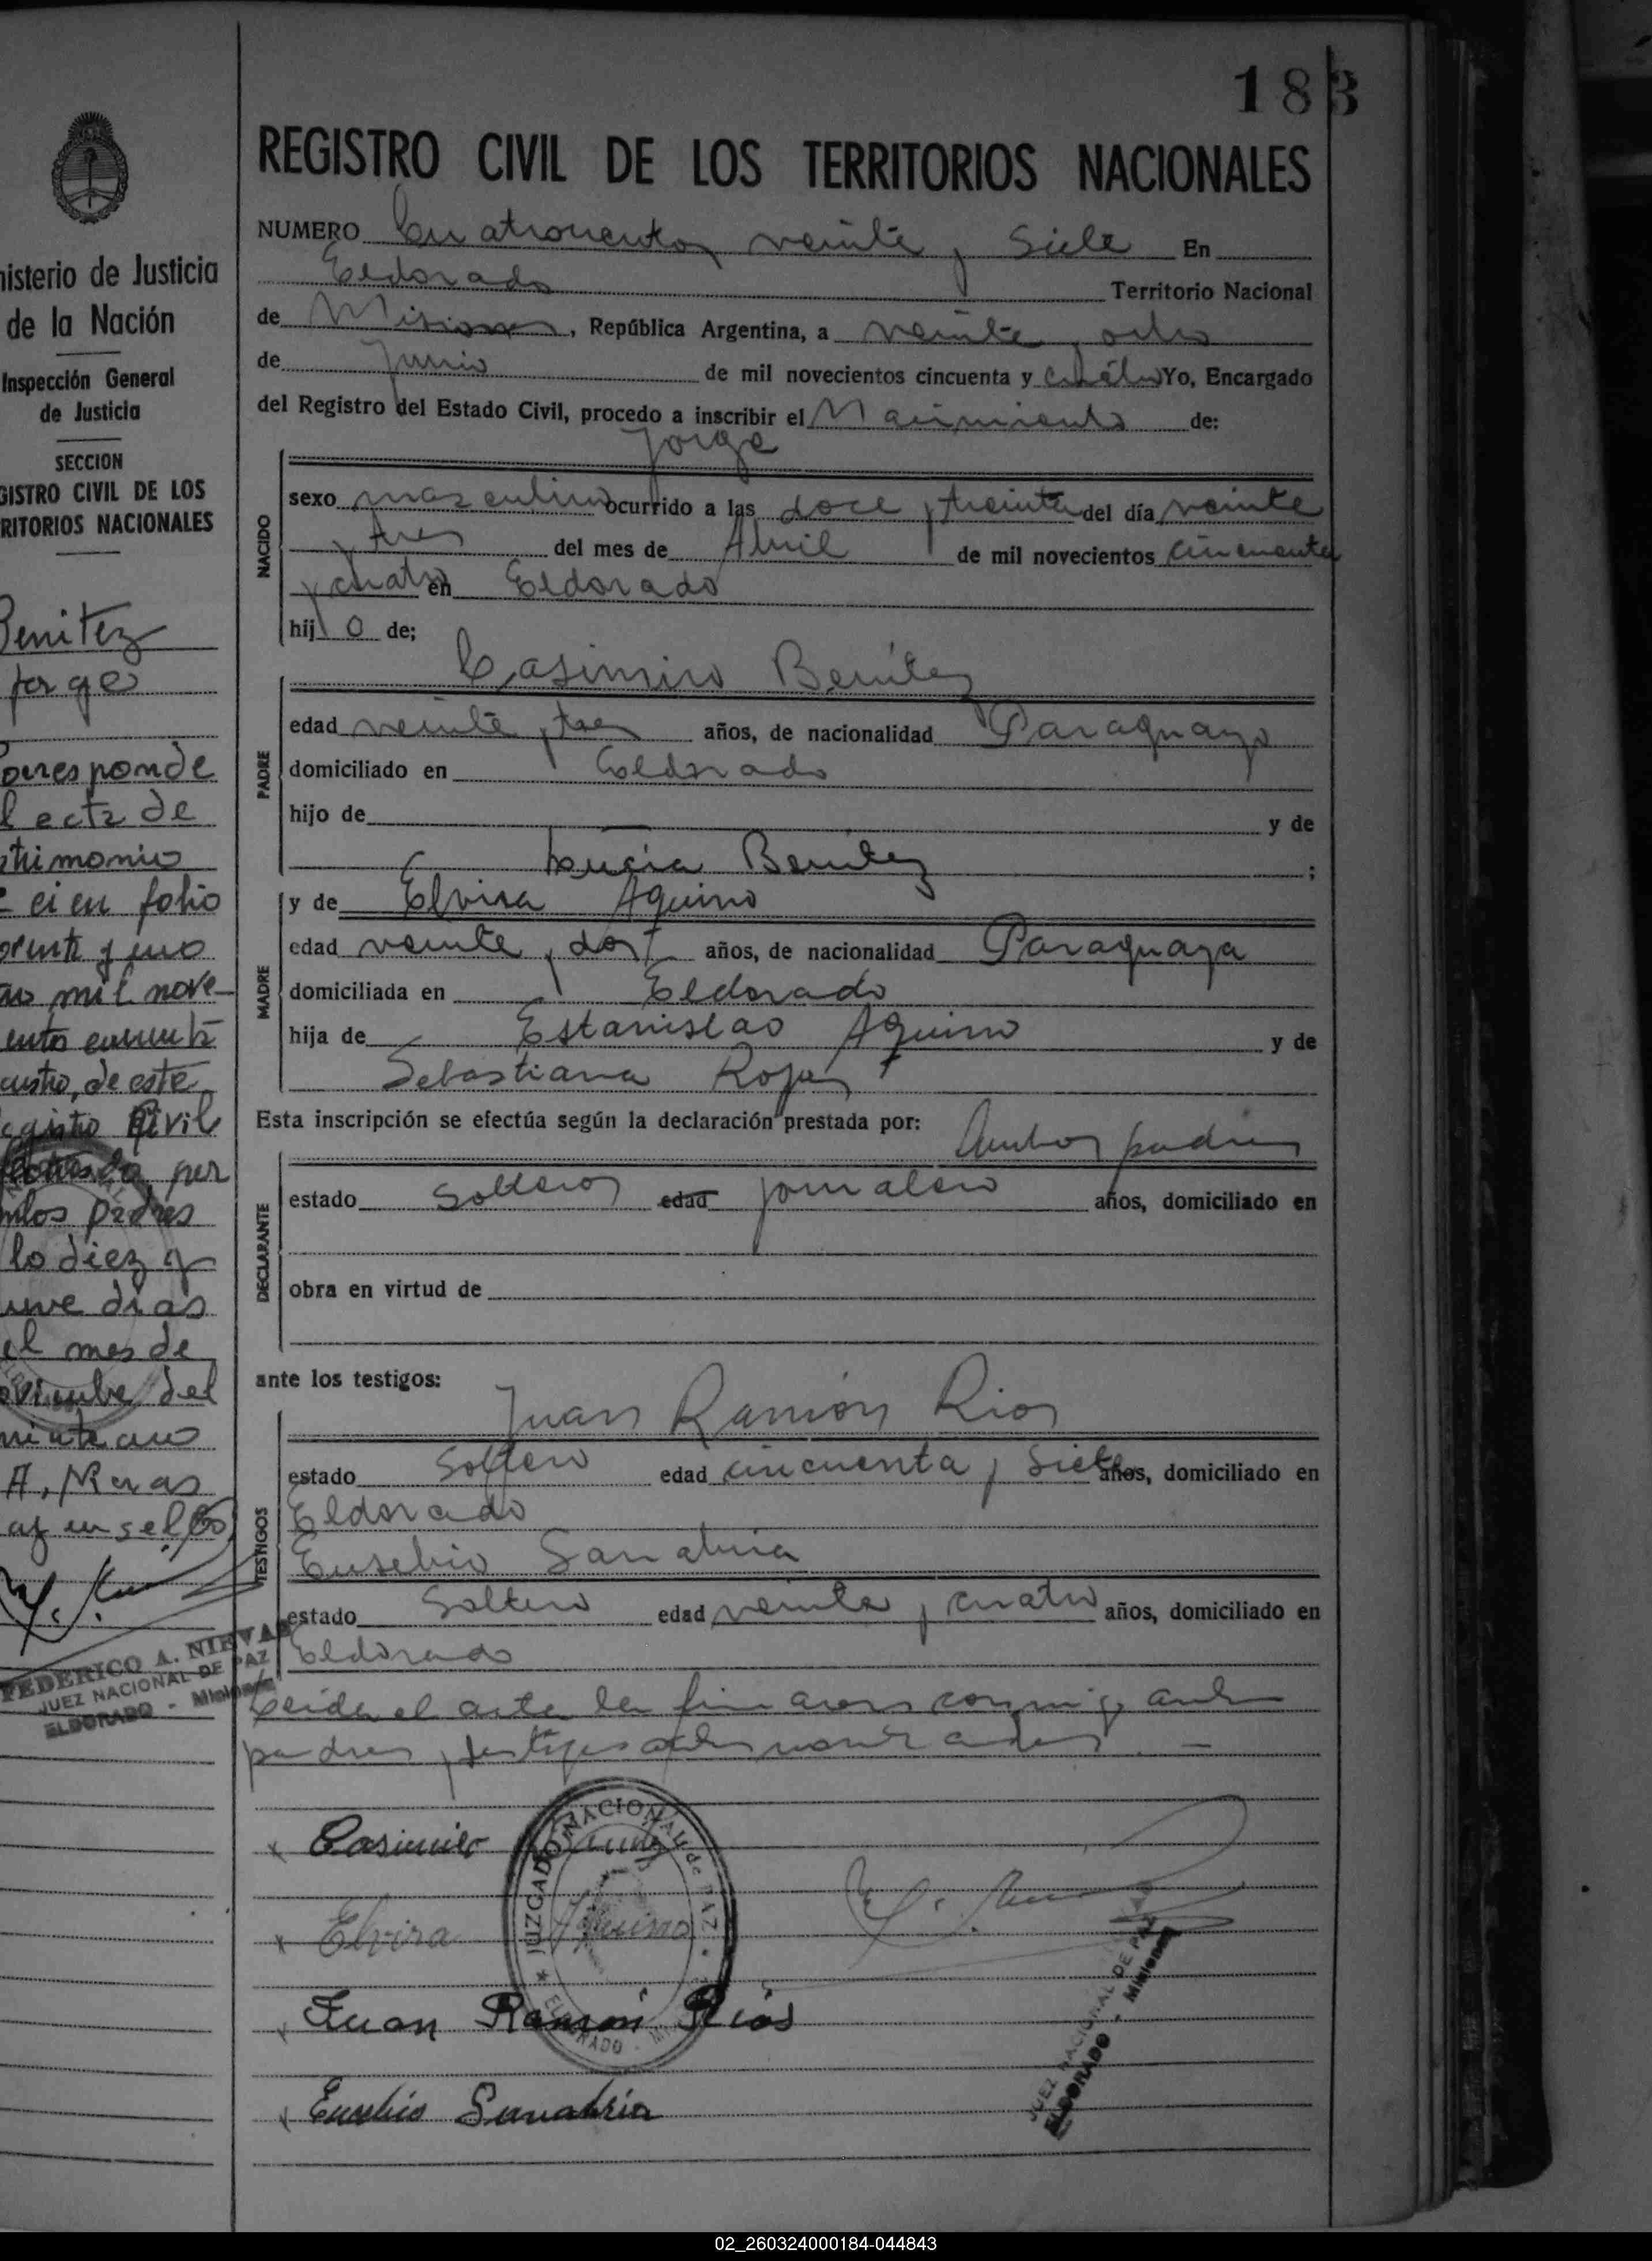 183
REGISTRO CIVIL DE LOS TERRITORIOS NACIONALES
NUMERO Cuatrocientos veinte y Siete En
Eldorado Territorio Nacional
de Misiones, República Argentina, a veinte y ocho
de Junio de mil novecientos cincuenta y cuatro Yo, Encargado
del Registro del Estado Civil, procedo a inscribir el Nacimiento de:
Jorge
NACIDO
sexo masculino ocurrido a las doce y treinta del día veinte
y tres del mes de Abril de mil novecientos cincuenta
y cuatro en Eldorado
hij o de;
Casimiro Benitez
PADRE
edad veinte y tres años, de nacionalidad Paraguayo
domiciliado en Eldorado
hijo de y de
Lucia Benitez ;
MADRE
y de Elvira Aquino
edad veinte y dos años, de nacionalidad Paraguaya
domiciliada en Eldorado
hija de Estanislao Aquino y de
Sebastiana Rojas
Esta inscripción se efectúa según la declaración prestada por:
Ambos padres
DECLARANTE
estado Solteros edad jornalero años, domiciliado en
obra en virtud de
ante los testigos:
Juan Ramón Rios
TESTIGOS
estado Soltero edad cincuenta y Siete años, domiciliado en
Eldorado
Eusebio Sanabria
estado Soltero edad veinte y cuatro años, domiciliado en
Eldorado
Leida el acta la firmaron conmigo ambos
padres y testigos
Casimiro
Elvira Aquino
Juan Ramón Rios
Eusebio Sanabria
JUZGADO NACIONAL de PAZ
ELDORADO
JUEZ NACIONAL DE PAZ
ELDORADO - Misiones
nisterio de Justicia
de la Nación
Inspección General
de Justicia
SECCION
GISTRO CIVIL DE LOS
RITORIOS NACIONALES
Benitez
Jorge
orresponde
l acta de
trimonio
en folio
y uno
mil nove-
de este
Civil
por
padres
lo diez y
dias
el mes de
del
FEDERICO A. NIEVAS
JUEZ NACIONAL DE PAZ
ELDORADO - Misiones
02_260324000184-044843